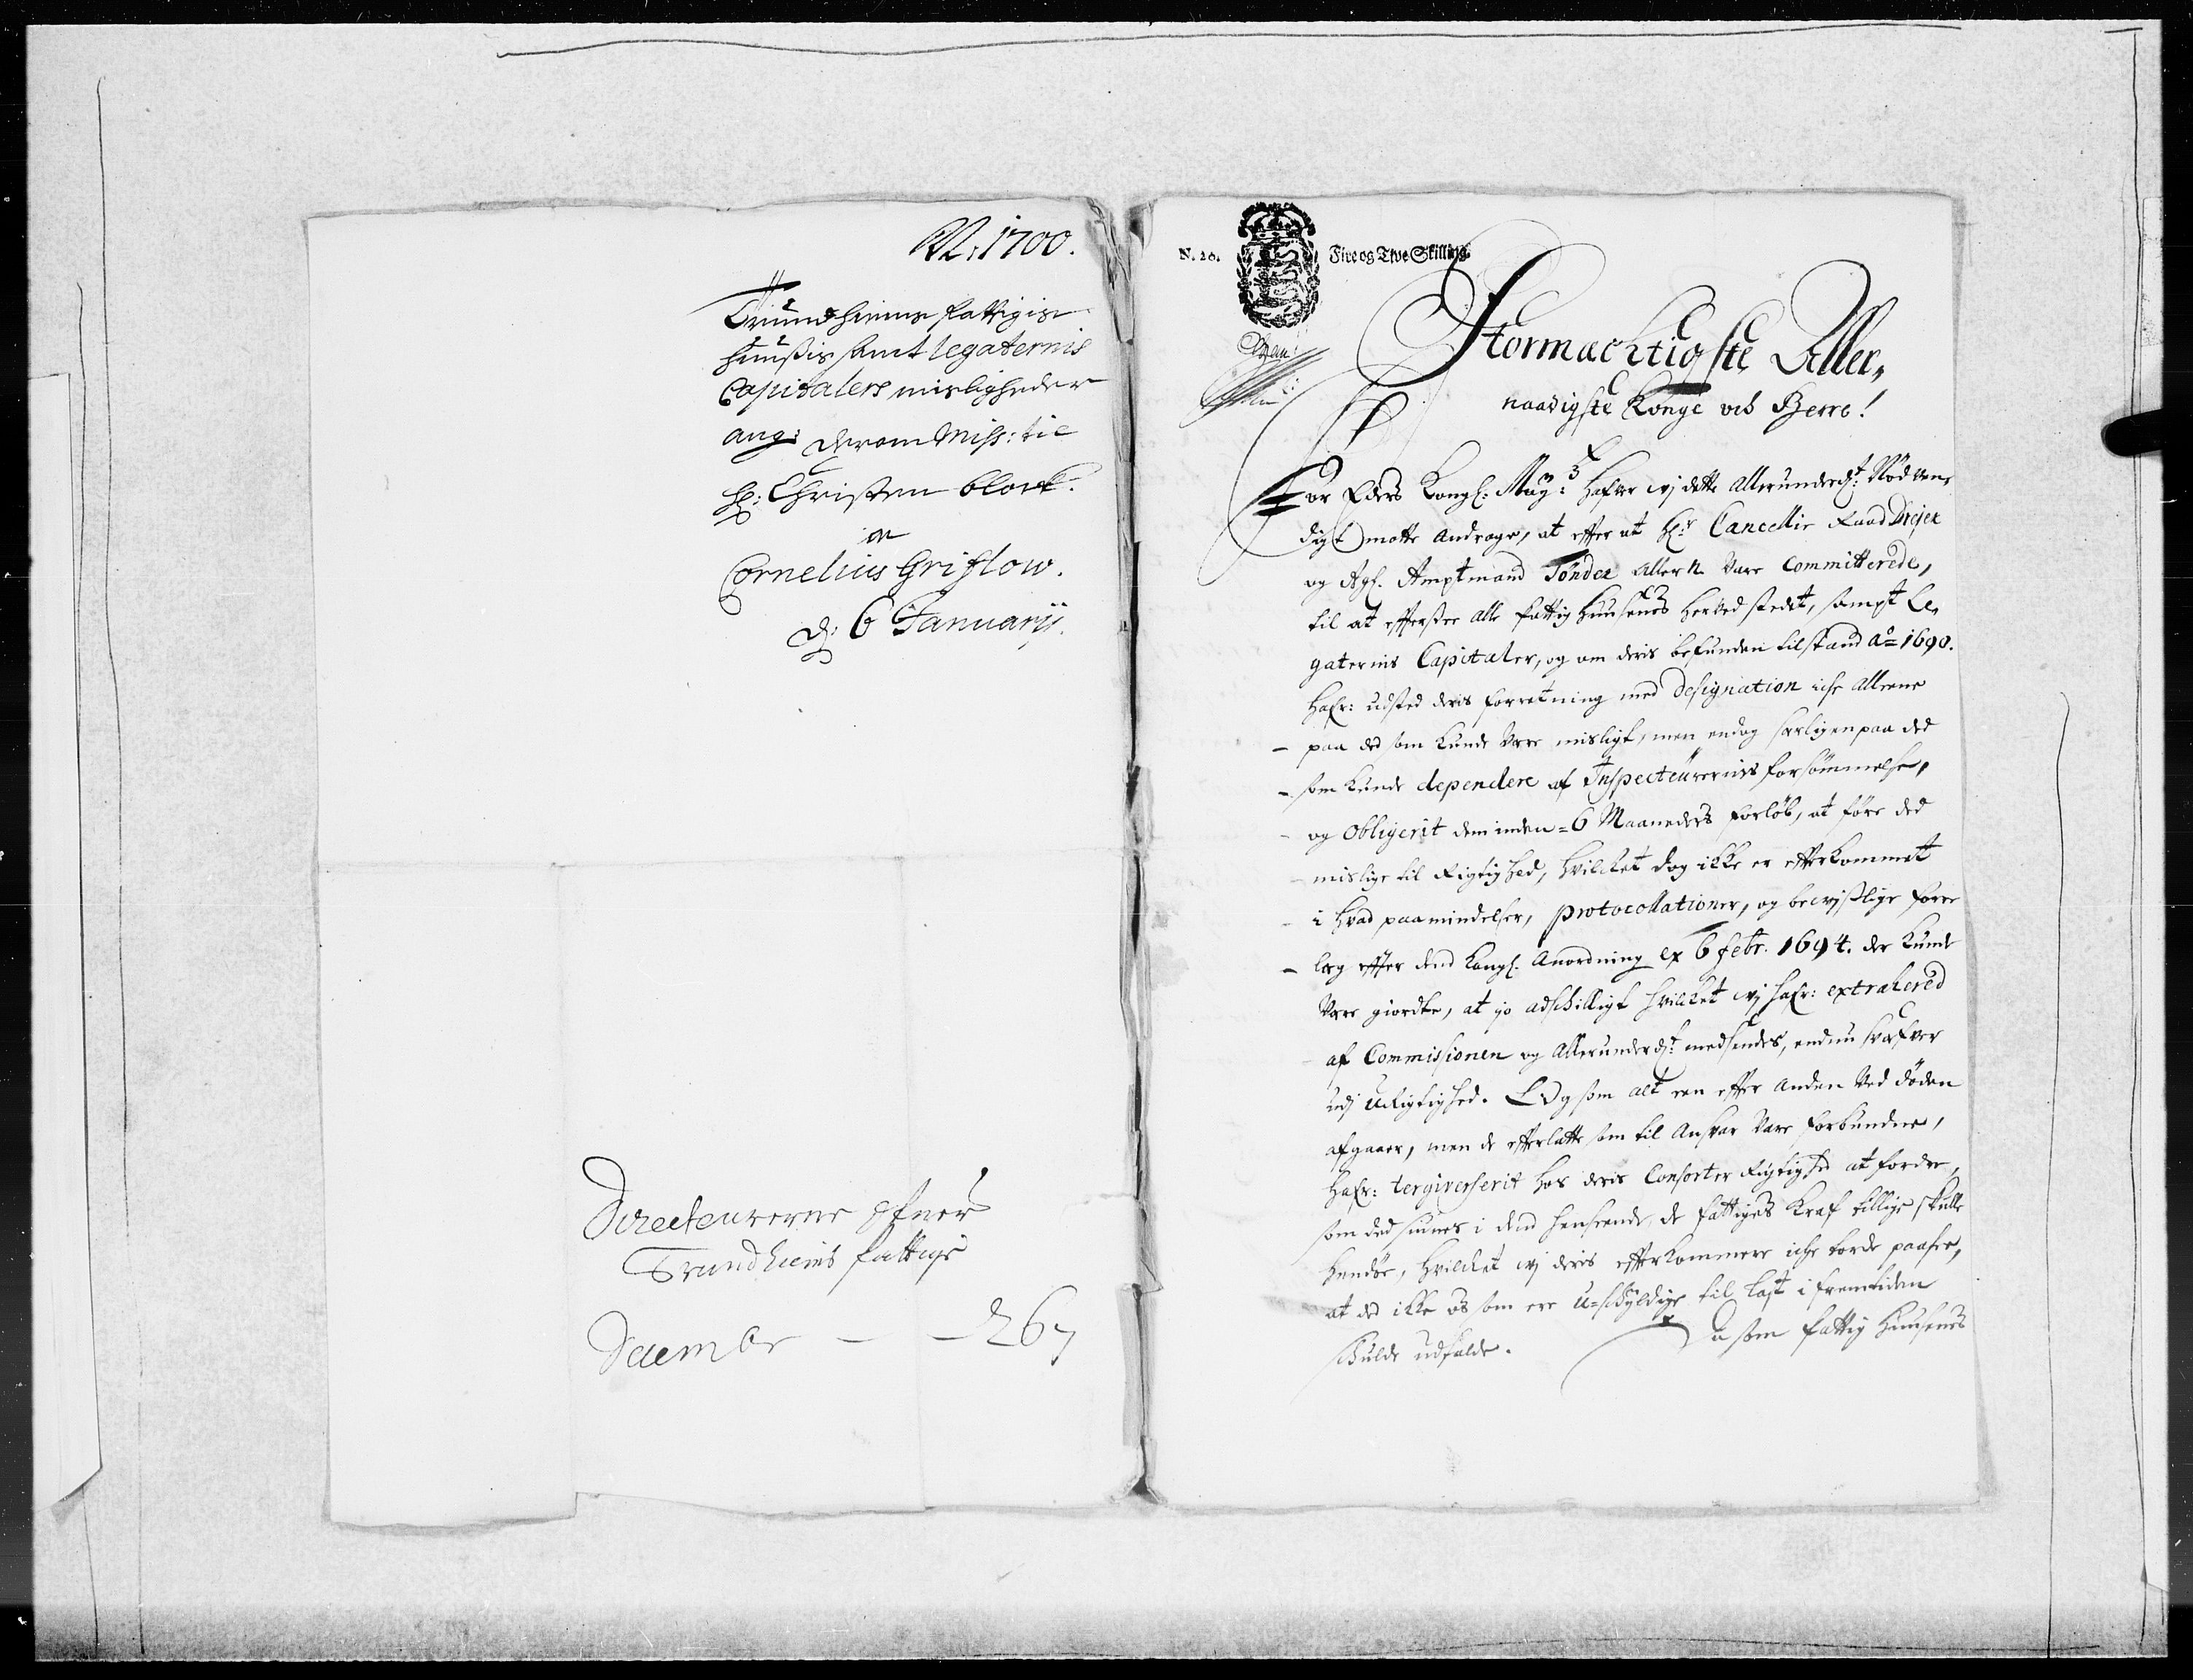 N. 1700.
Trundhiems fattigis
huußis samt legaternis
Capitalers misligheder
ang: derom Miss: til
Hr: Christen block.
en
Cornelius Griflow.
d: 6 Januarij.
Directeurerne ofver
Trundhiems fattige
Decembr — — 267
N. 20.
Fire og Tive Skilling
Stormæchtigste Aller„
naadigste Konge och Herre!
For Eders Kongl: May:tz hafver wj dette allerunderd:t Nødven„
digt motte andrage, at efter at Hr: Cancellie Raad Drejer
og Ass. Amptmand Tønder aller n. vare Committerede,
til at efterse alle fattig huusenes her ved stedet, sampt Le„
gaternis Capitaler, og om deris befunden tilstand Ao 1690.
hafr: udsted deris forretning med designation iche alleene
paa ded som kunde være misligt, men endog særligen paa ded
som kunde dependere af Inspecteurernis forsømmelse,
og obligerit dem inden 6 Maaneders forløb, at føre ded
mislige til Rigtighed, hvilchet dog ikke er efterkommet
i hvad paamindelser, protocollationer, og bevißlige fore
læg efter dend kongl. Anordning ex 6 febr. 1694. der kunde
være giordte, at jo adschilligt hvilchet wj hafr: extrahered
af Commissionen og allerunderd:t medsendes, endnu svæfver
udj urigtighed. Og som alt een efter anden ved døden
afgaaer, men de efterlatte som til ansvar vare forbundne,
hafr: tergiverserit hos deris Consorter Rigtighed at fordre,
som ded siunes i dend henseende, de fattiges Kraf tillige skulle
hendøe, hvilchet wj deris efterkommere iche torde paasee,
at ded ikke os som ere u-schyldige til last i fremtiden
schulde udfalde.
Da som fattig huusenes